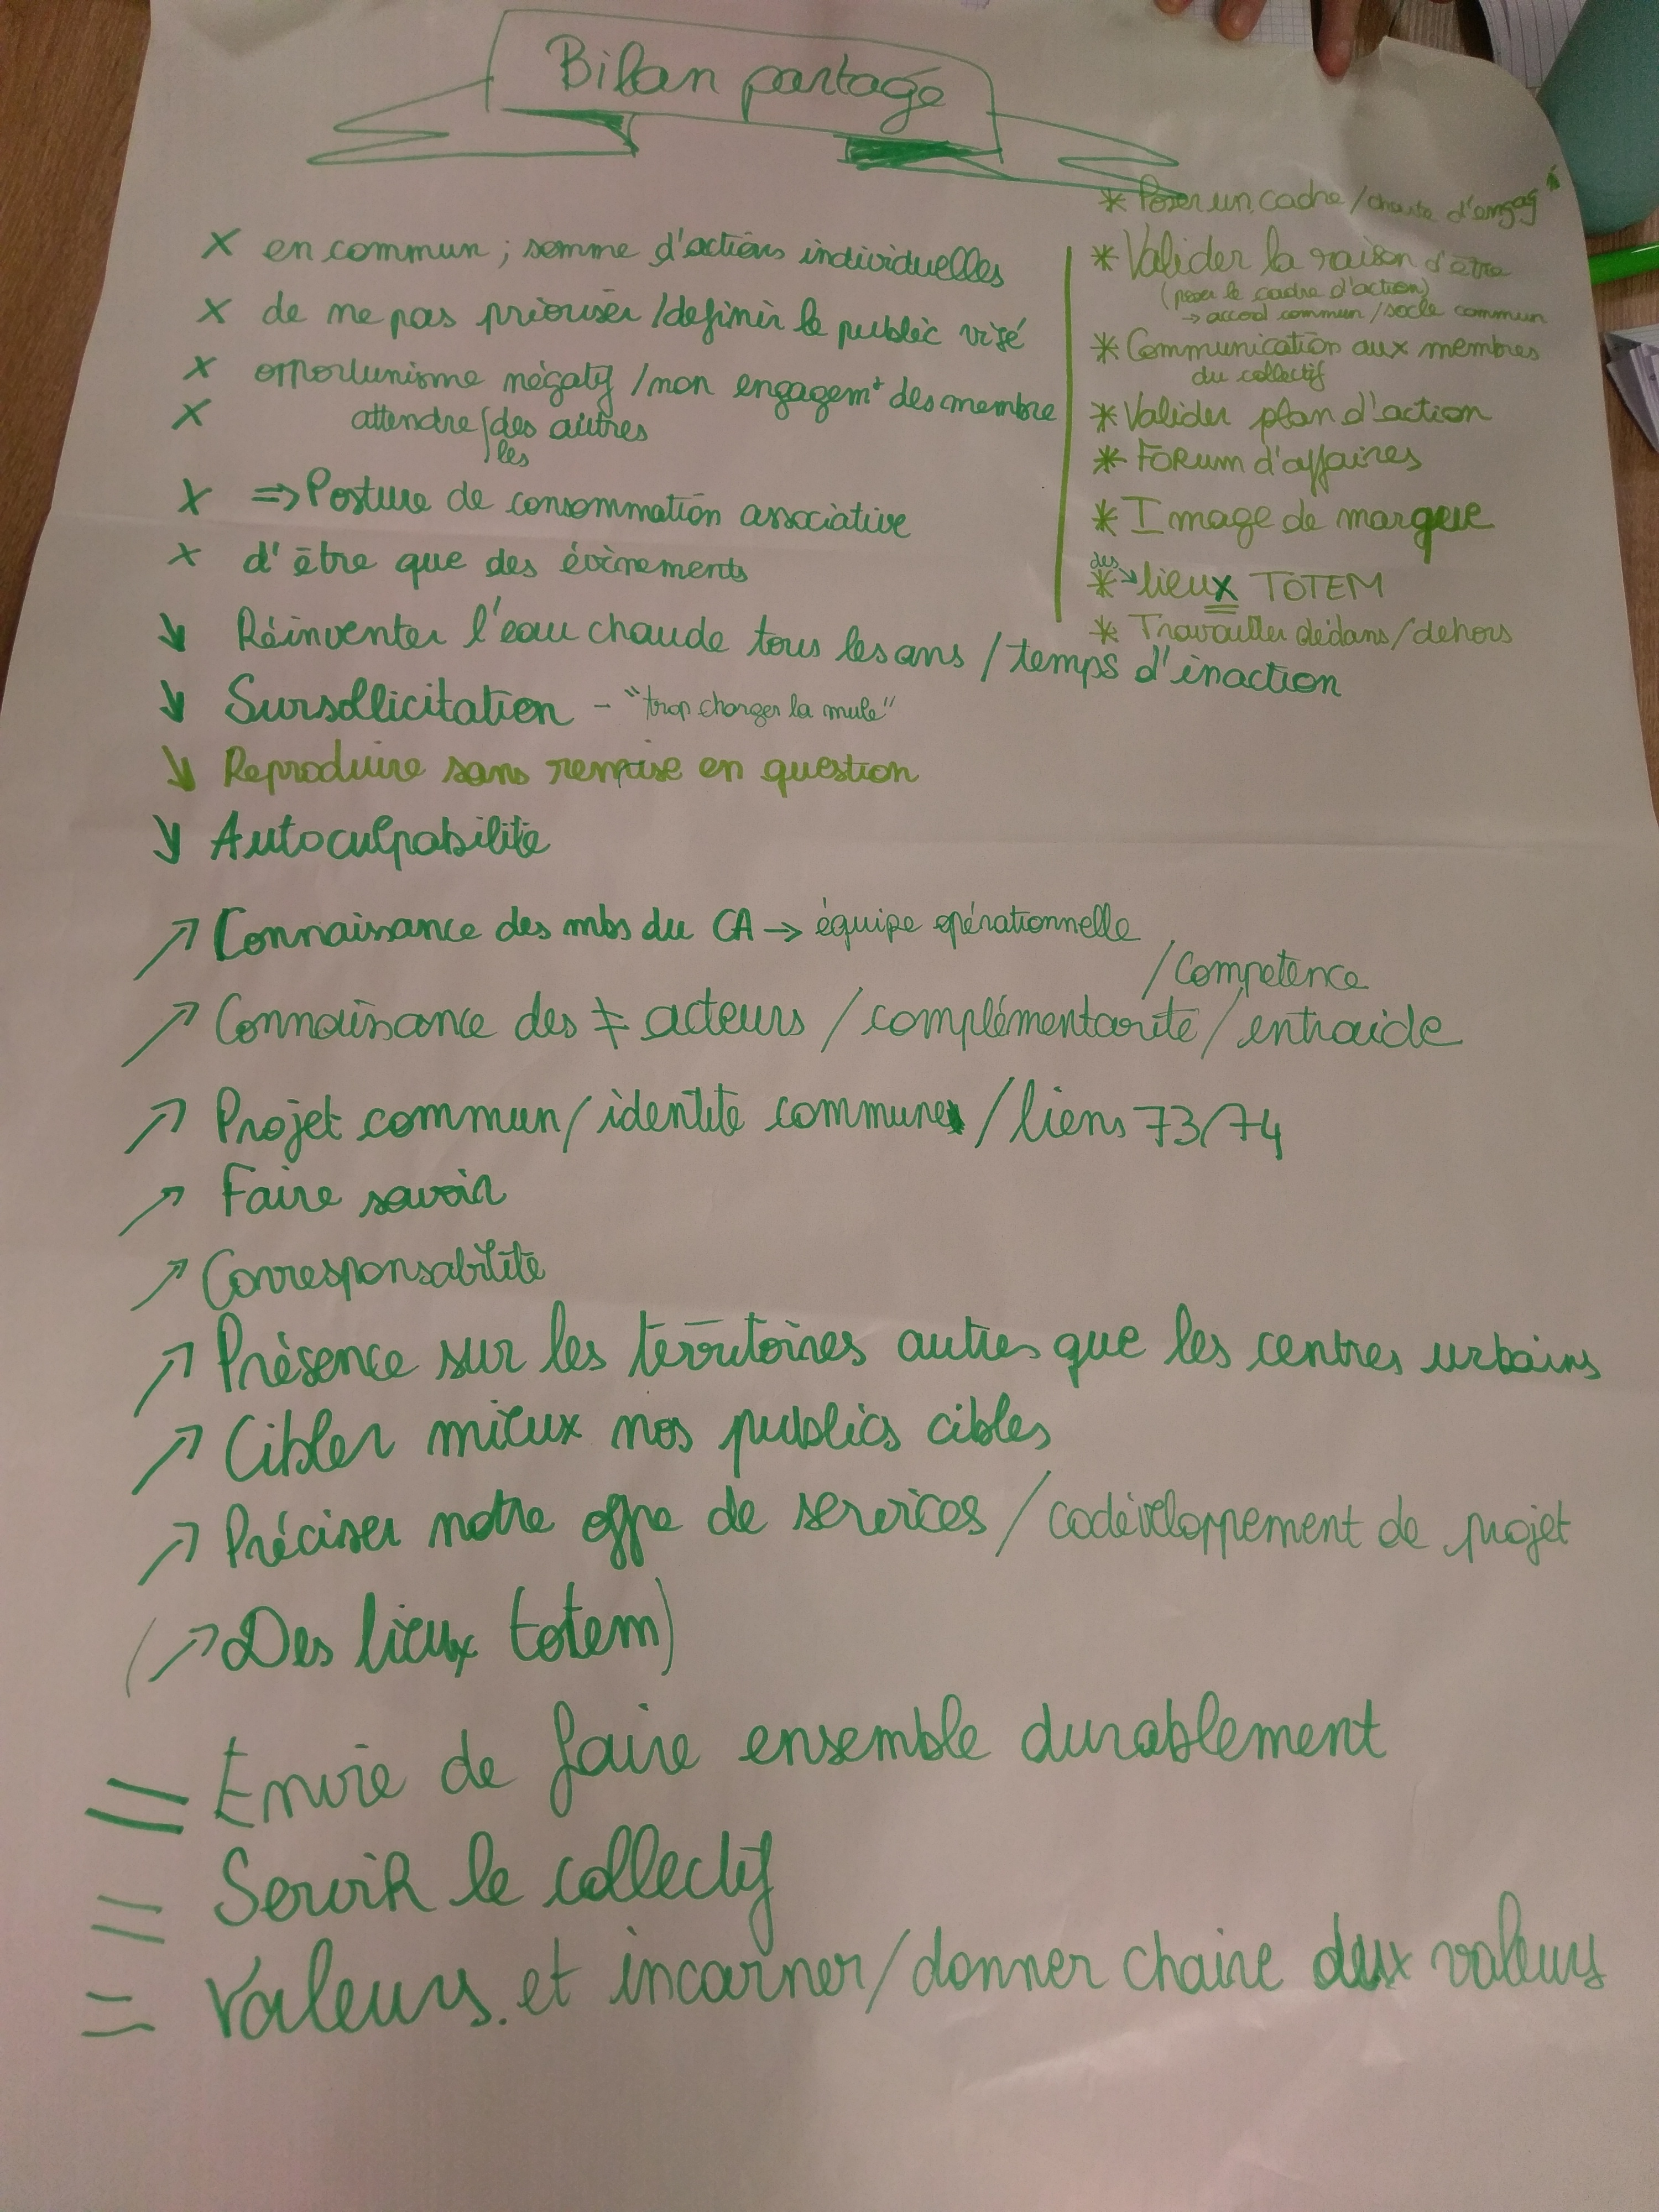 Bilan partagé
X en commun ; somme d'actions individuelles
X de ne pas prioriser /définir le public visé
X opportunisme négatif /non engagemt des membre
X attendre / des autres
les
X => Posture de consommation associative
X d'être que des évènements
↘ Réinventer l'eau chaude tous les ans / temps d'inaction
↘ Sursollicitation - "trop charger la mule"
↘ Reproduire sans remise en question
↘ Autoculpabilité
* Poser un cadre / charte d'engagt
* Valider la raison d'être
(poser le cadre d'action)
→ accord commun / socle commun
* Communication aux membres
du collectif
* Valider plan d'action
* FORUM d'affaires
* Image de marque
des
* → lieux TOTEM
* Travailler dedans/dehors
↗ Connaissance des mbs du CA → équipe opérationnelle
/ compétence
↗ Connaissance des ≠ acteurs / complémentarité / entraide
↗ Projet commun / identité commune / liens 73/74
↗ Faire savoir
↗ Corresponsabilité
↗ Présence sur les territoires autres que les centres urbains
↗ Cibler mieux nos publics cibles
↗ Préciser notre offre de services / codéveloppement de projet
(↗ Des lieux totem)
= Envie de faire ensemble durablement
= Servir le collectif
= Valeurs et incarner / donner chaire aux valeurs